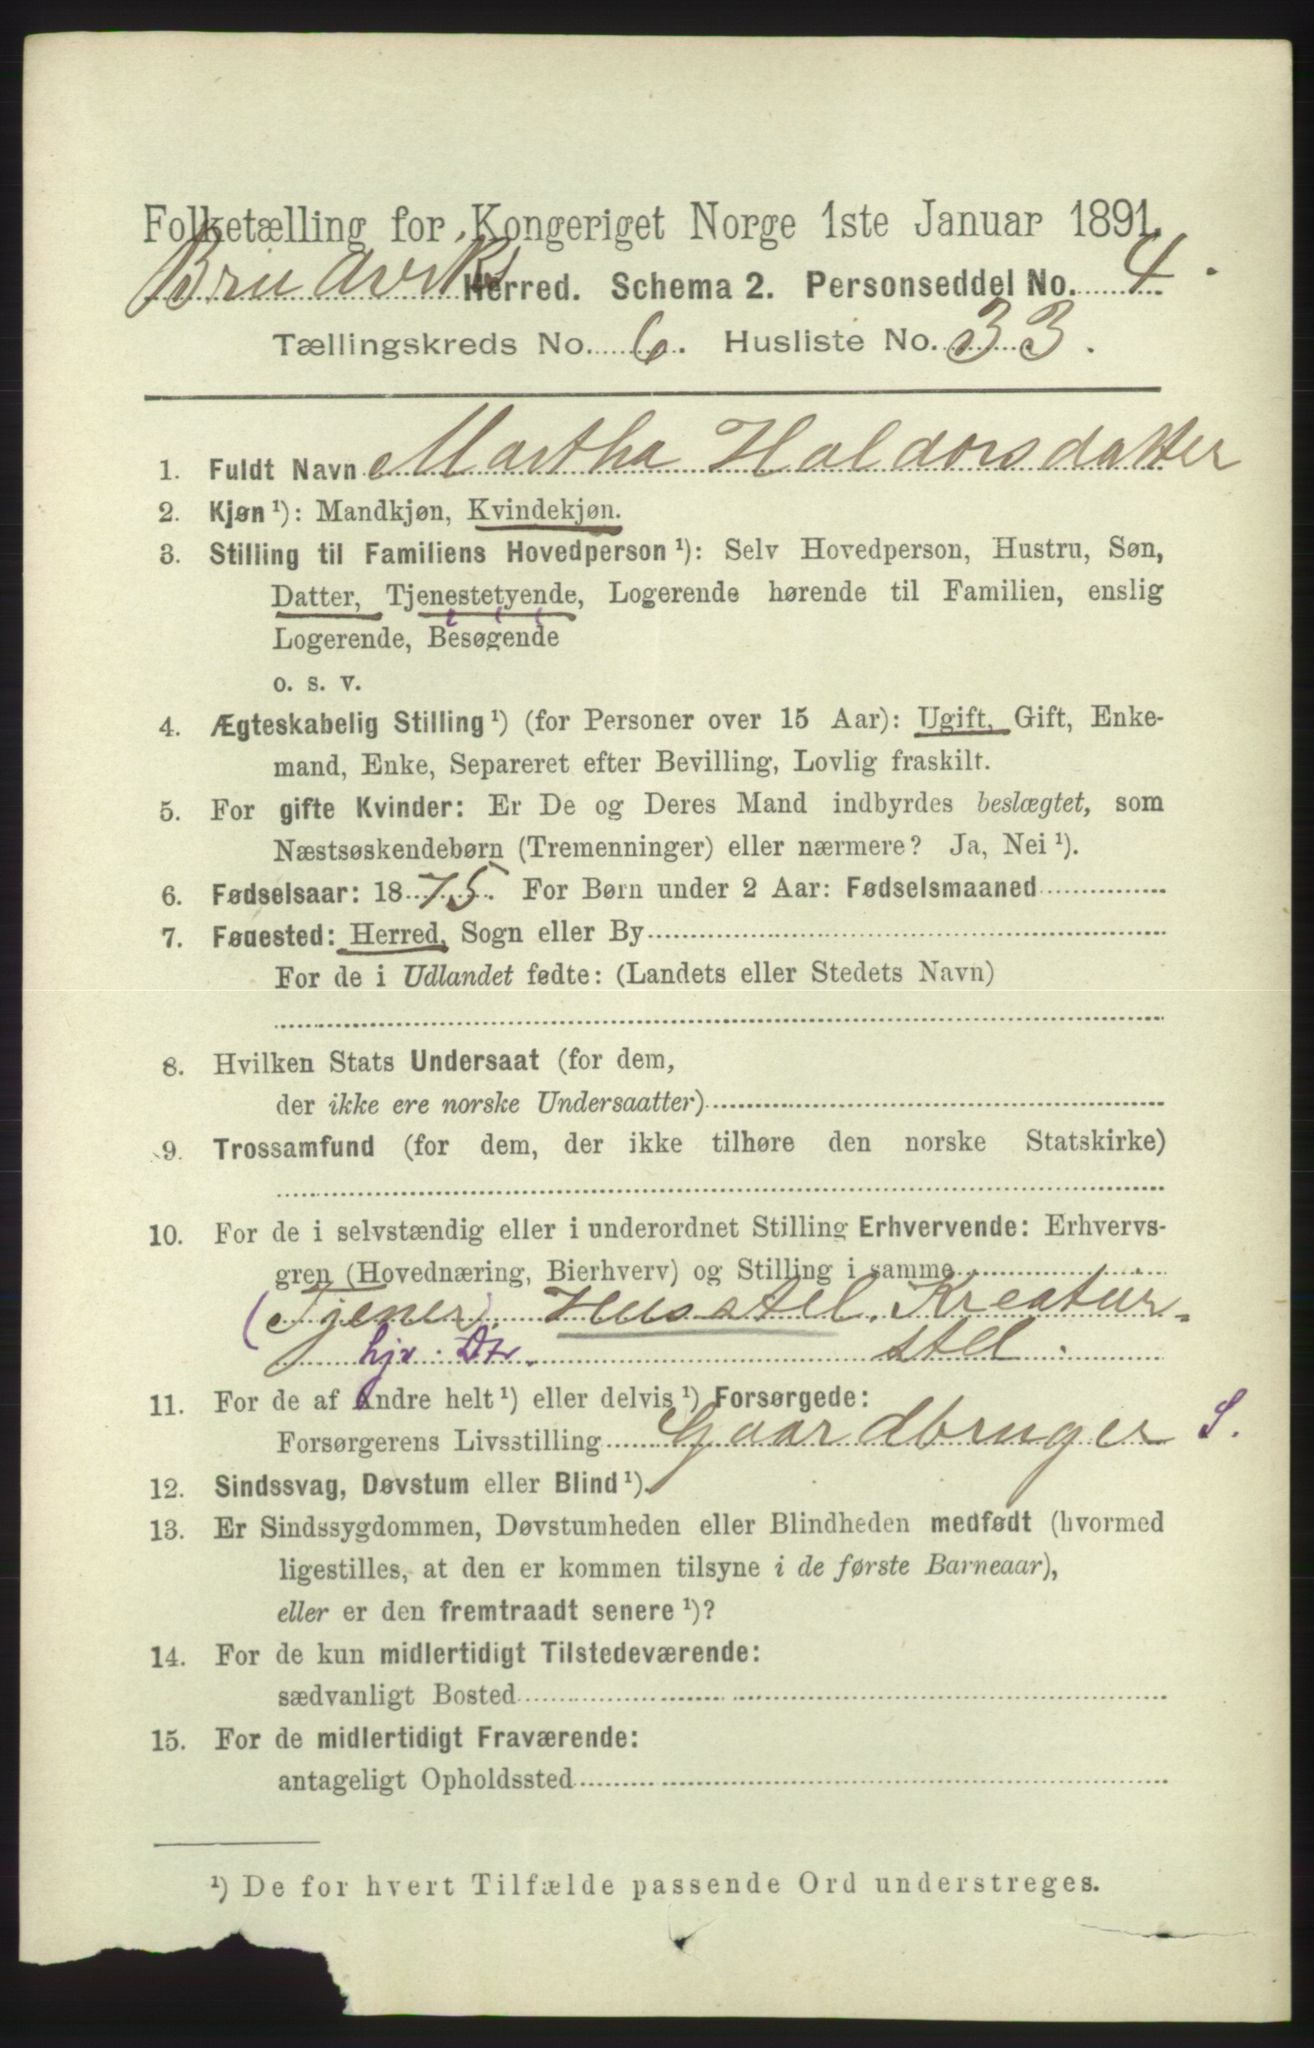 Folketælling for Kongeriget Norge 1ste Januar 1891.
Bruviks Herred. Schema 2. Personseddel No. 4.
Tællingskreds No. 6. Husliste No. 33.
1. Fuldt Navn Martha Haldorsdatter
2. Kjøn ¹): Mandkjøn, Kvindekjøn.
3. Stilling til Familiens Hovedperson ¹): Selv Hovedperson, Hustru, Søn,
Datter, Tjenestetyende, Logerende hørende til Familien, enslig
Logerende, Besøgende
o. s. v.
4. Ægteskabelig Stilling ¹) (for Personer over 15 Aar): Ugift, Gift, Enke-
mand, Enke, Separeret efter Bevilling, Lovlig fraskilt.
5. For gifte Kvinder: Er De og Deres Mand indbyrdes beslægtet, som
Næstsøskendebørn (Tremenninger) eller nærmere? Ja, Nei ¹).
6. Fødselsaar: 1875. For Børn under 2 Aar: Fødselsmaaned
7. Fødested: Herred, Sogn eller By
For de i Udlandet fødte: (Landets eller Stedets Navn)
8. Hvilken Stats Undersaat (for dem,
der ikke ere norske Undersaatter)
9. Trossamfund (for dem, der ikke tilhøre den norske Statskirke)
10. For de i selvstændig eller i underordnet Stilling Erhvervende: Erhvervs-
gren (Hovednæring, Bierhverv) og Stilling i samme
(Tjener). Husstel, Kreatur-
hjv. Dtr. stel.
11. For de af Andre helt ¹) eller delvis ¹) Forsørgede:
Forsørgerens Livsstilling Gaardbruger S.
12. Sindssvag, Døvstum eller Blind ¹).
13. Er Sindssygdommen, Døvstumheden eller Blindheden medfødt (hvormed
ligestilles, at den er kommen tilsyne i de første Barneaar),
eller er den fremtraadt senere ¹)?
14. For de kun midlertidigt Tilstedeværende:
sædvanligt Bosted
15. For de midlertidigt Fraværende:
antageligt Opholdssted
¹) De for hvert Tilfælde passende Ord understreges.